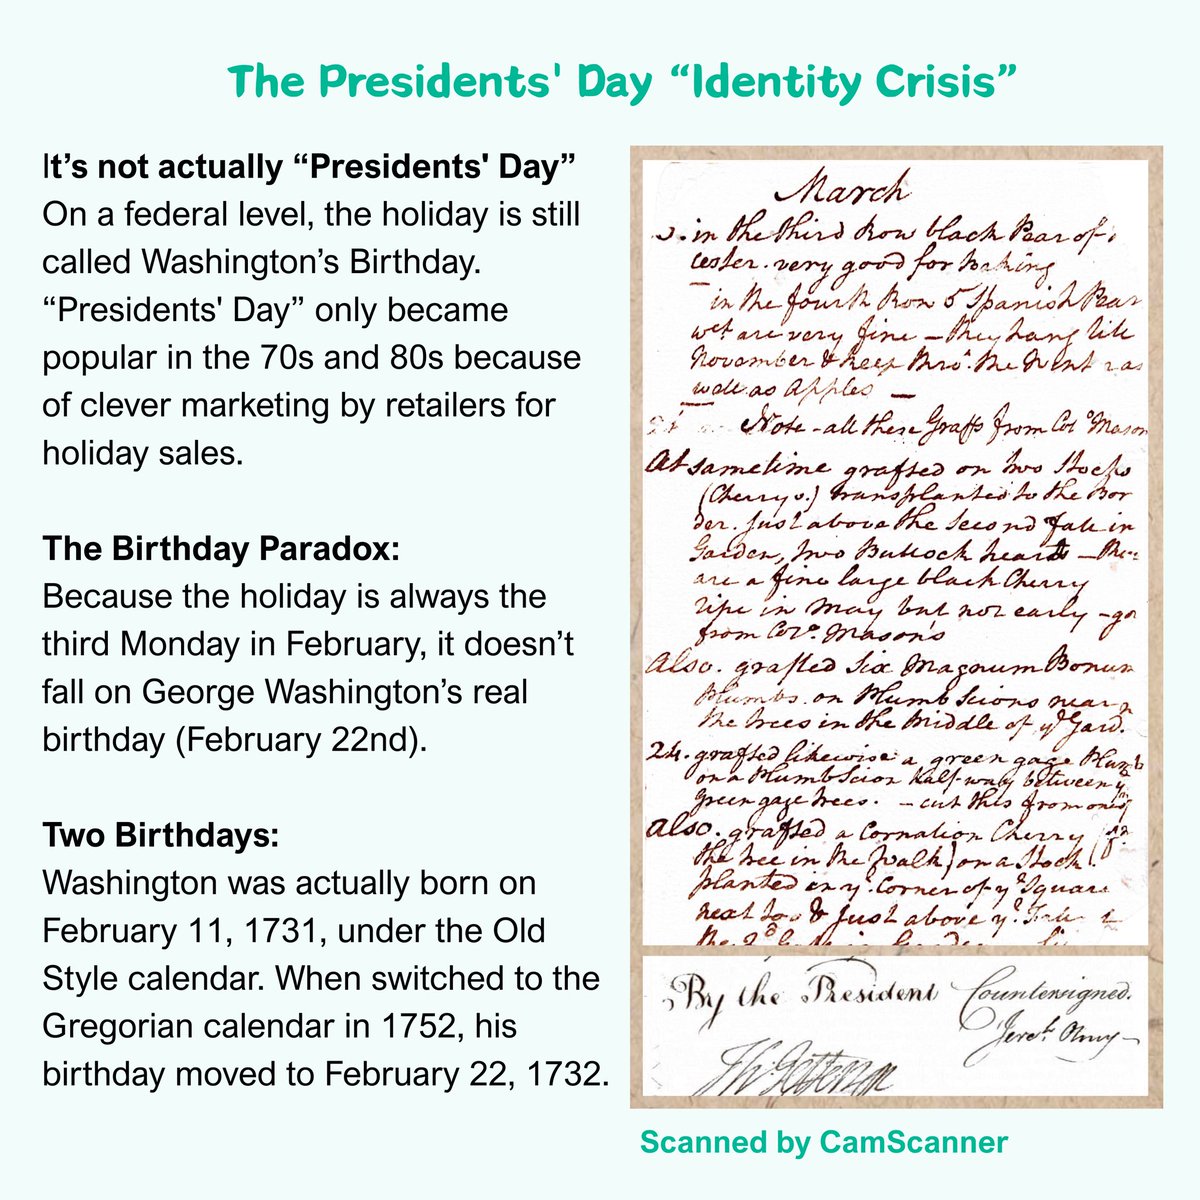 The Presidents' Day “Identity Crisis”
It’s not actually “Presidents' Day”
On a federal level, the holiday is still
called Washington’s Birthday.
“Presidents' Day” only became
popular in the 70s and 80s because
of clever marketing by retailers for
holiday sales.
The Birthday Paradox:
Because the holiday is always the
third Monday in February, it doesn’t
fall on George Washington’s real
birthday (February 22nd).
Two Birthdays:
Washington was actually born on
February 11, 1731, under the Old
Style calendar. When switched to the
Gregorian calendar in 1752, his
birthday moved to February 22, 1732.
March
in the third Row black Pear of
cester. very good for baking
in the fourth Row 5 Spanish Pear
wct. are very fine — they hang till
November & keep thro'. the as
well as Apples —
Note - all these Grafts from Colo Mason
At sametime grafted on two Stocks
(Cherry) transplanted to the Bor
der. just above the second fall in
Garden, two Bullock hearts —
are a fine large black Cherry
ripe in May but not early -
from Colo. Mason's
Also. grafted Six Magnum Bonum
Plumbs. on Plumb Scions near
the trees in the Middle of ye. Gard.
24. grafted likewise a green gage Plumb
on a Plumb Scion half-way between
Green gage trees. — cut this from
Also. grafted a Cornation Cherry
the tree in the walk) on a Stock
planted in ye. corner of ye. Square
next & just above ye.
By the President Countersigned.
Th. Jefferson
Scanned by CamScanner